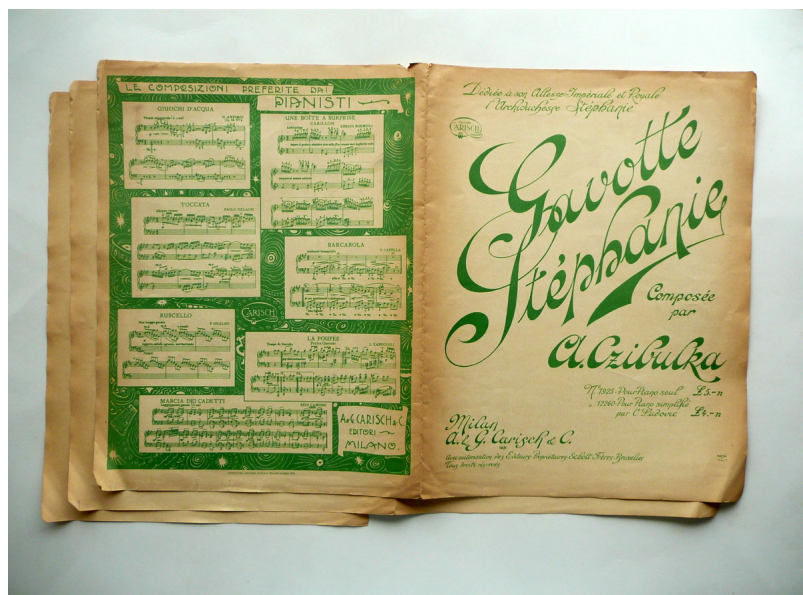 LE COMPOSIZIONI PREFERITE DAI
PIANISTI
GIUOCHI D'ACQUA
UNE BOÎTE A SURPRISE
CARILLON
TOCCATA
BARCAROLA
CARISCH
RUSCELLO
LA POUPÉE
MARCIA DEI CADETTI
A. & G. CARISCH & C.
EDITORI -
MILANO.
Dédiée à son Altesse Impériale et Royale
l'Archiduchesse Stéphanie
CARISCH
Gavotte
Stéphanie
Composée
par
A. Czibulka
No 7923 - Pour Piano seul £ 5.- n
" 12260 Pour Piano simplifié
par C. Padovie £ 4.- n
Milan
A. & G. Carisch & C.
Avec autorisation des Editeurs Propriétaires Schott Frères Bruxelles
Tous droits réservés